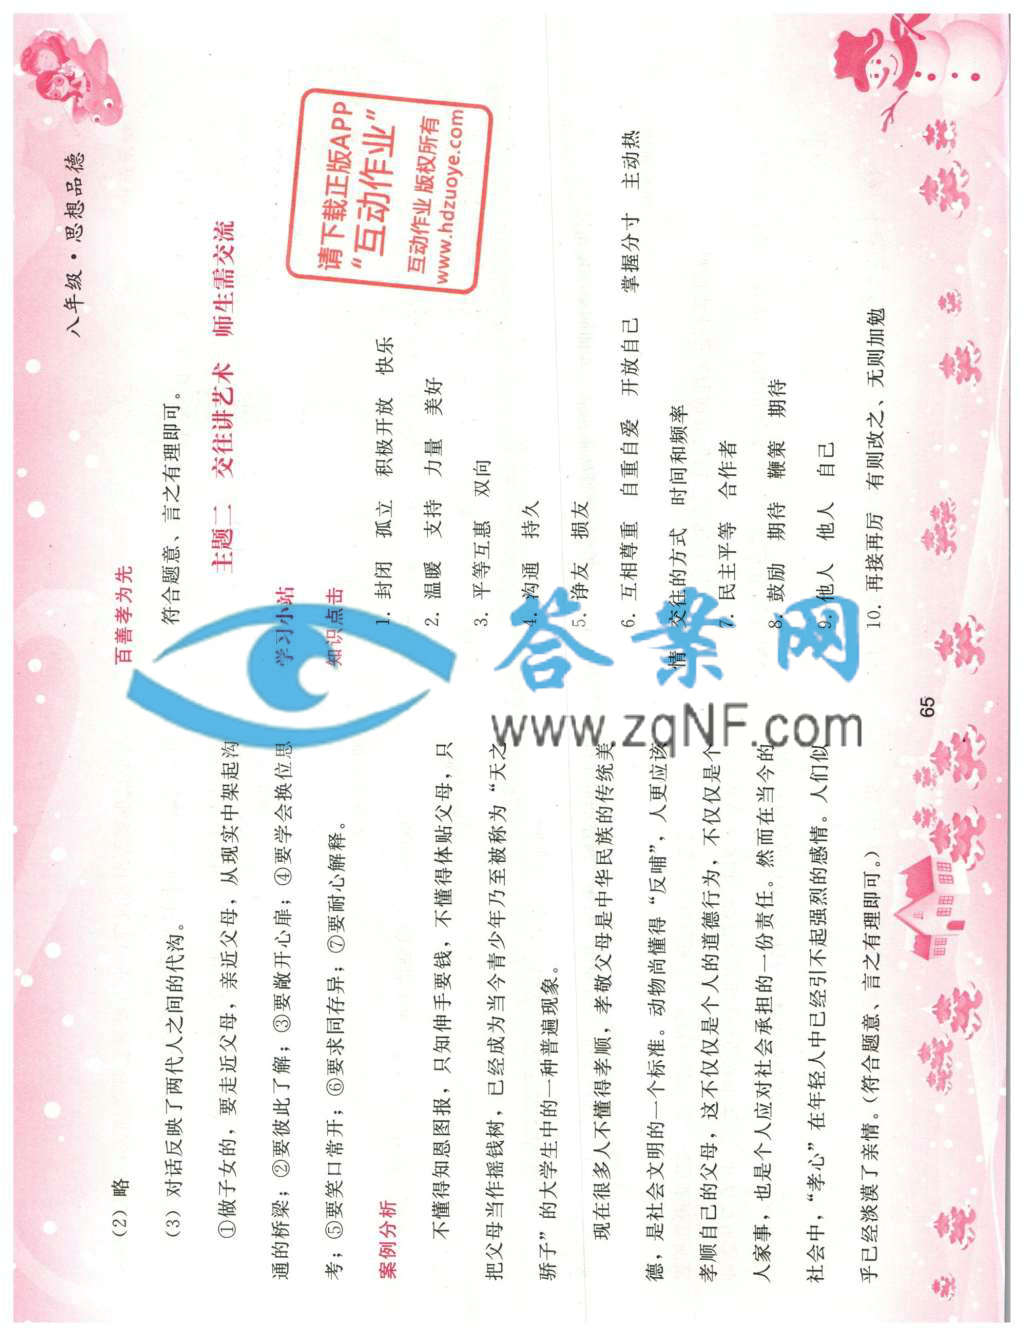 八年级·思想品德
(2) 略
(3) 对话反映了两代人之间的代沟。
①做子女的，要走近父母，亲近父母，从现实中架起沟
通的桥梁；②要彼此了解；③要敞开心扉；④要学会换位思
考；⑤要笑口常开；⑥要求同存异；⑦要耐心解释。
案例分析
不懂得知恩图报，只知伸手要钱，不懂得体贴父母，只
把父母当作摇钱树，已经成为当今青少年乃至被称为“天之
骄子”的大学生中的一种普遍现象。
现在很多人不懂得孝顺，孝敬父母是中华民族的传统美
德，是社会文明的一个标准。动物尚懂得“反哺”，人更应该
孝顺自己的父母，这不仅仅是个人的道德行为，不仅仅是个
人家事，也是个人应对社会承担的一份责任。然而在当今的
社会中，“孝心”在年轻人中已经引不起强烈的感情。人们似
乎已经淡漠了亲情。(符合题意、言之有理即可。)
百善孝为先
符合题意、言之有理即可。
主题二 交往讲艺术 师生需交流
学习小站
知识点击
1. 封闭 孤立 积极开放 快乐
2. 温暖 支持 力量 美好
3. 平等互惠 双向
4. 沟通 持久
5. 诤友 损友
6. 互相尊重 自重自爱 开放自己 掌握分寸 主动热
情 交往的方式 时间和频率
7. 民主平等 合作者
8. 鼓励 期待 鞭策 期待
9. 他人 他人 自己
10. 再接再厉 有则改之、无则加勉
65
请下载正版APP
“互动作业”
互动作业 版权所有
www.hdzuoye.com
答案网
www.zqNF.com